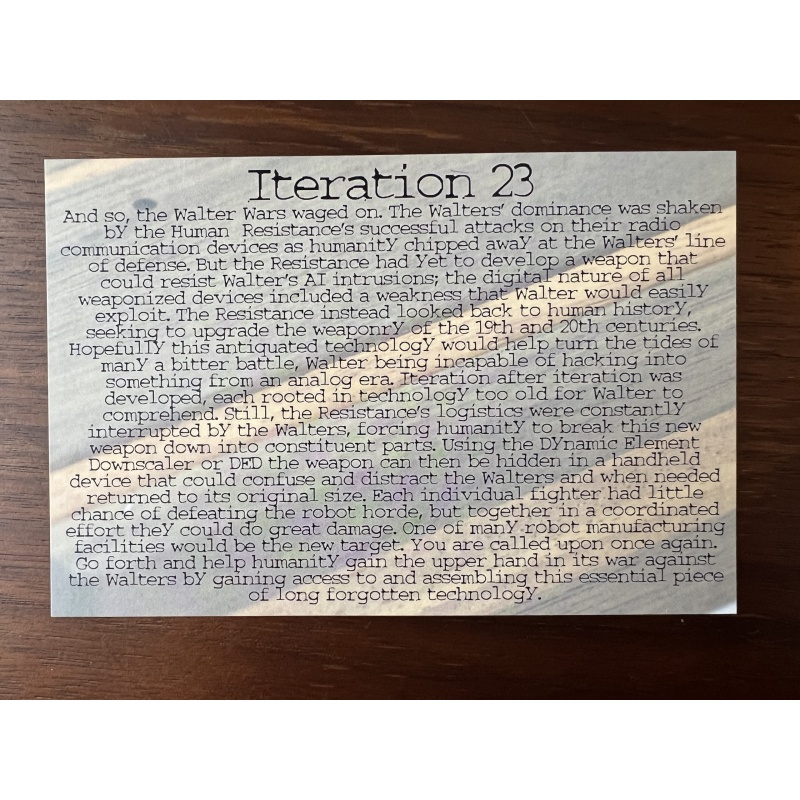 Iteration 23
And so, the Walter Wars waged on. The Walters' dominance was shaken
bY the Human Resistance's successful attacks on their radio
communication devices as humanitY chipped awaY at the Walters' line
of defense. But the Resistance had Yet to develop a weapon that
could resist Walter's AI intrusions; the digital nature of all
weaponized devices included a weakness that Walter would easilY
exploit. The Resistance instead looked back to human historY,
seeking to upgrade the weaponrY of the 19th and 20th centuries.
HopefullY this antiquated technologY would help turn the tides of
manY a bitter battle, Walter being incapable of hacking into
something from an analog era. Iteration after iteration was
developed, each rooted in technologY too old for Walter to
comprehend. Still, the Resistance's logistics were constantlY
interrupted bY the Walters, forcing humanitY to break this new
weapon down into constituent parts. Using the DYnamic Element
Downscaler or DED the weapon can then be hidden in a handheld
device that could confuse and distract the Walters and when needed
returned to its original size. Each individual fighter had little
chance of defeating the robot horde, but together in a coordinated
effort theY could do great damage. One of manY robot manufacturing
facilities would be the new target. You are called upon once again.
Go forth and help humanitY gain the upper hand in its war against
the Walters bY gaining access to and assembling this essential piece
of long forgotten technologY.